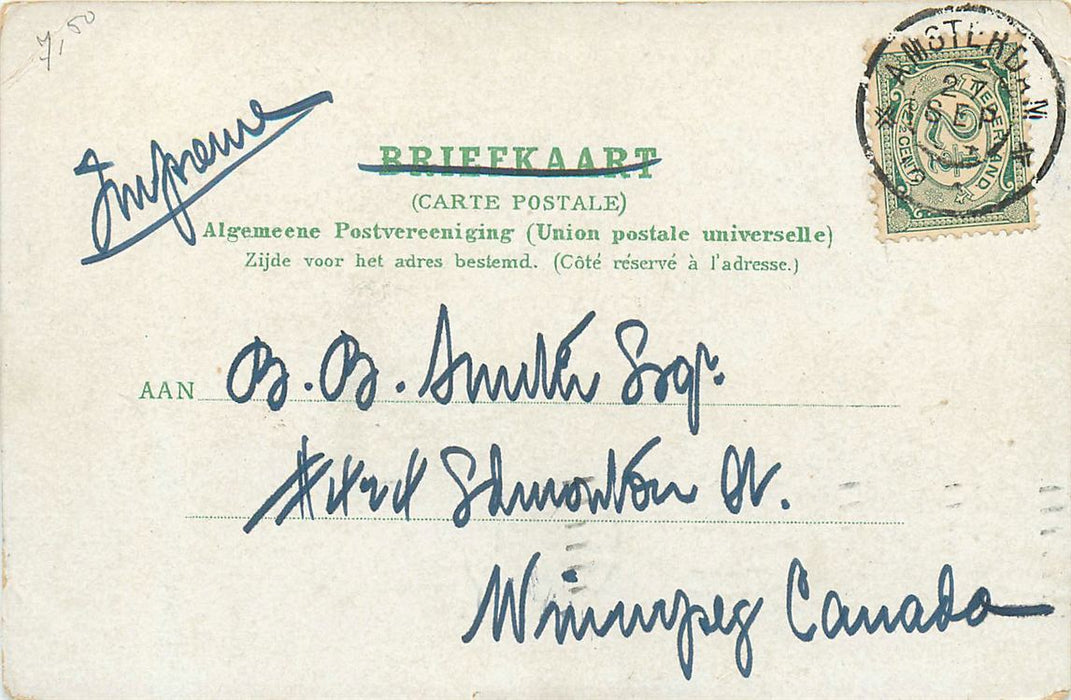 7,50
AMSTERDAM
2 SEP
NEDERLAND
2½ CENT
Imprimé
BRIEFKAART
(CARTE POSTALE)
Algemeene Postvereeniging (Union postale universelle)
Zijde voor het adres bestemd. (Côté réservé à l'adresse.)
AAN B. B. Smith Esqr.
Edmonton St.
Winnipeg Canada